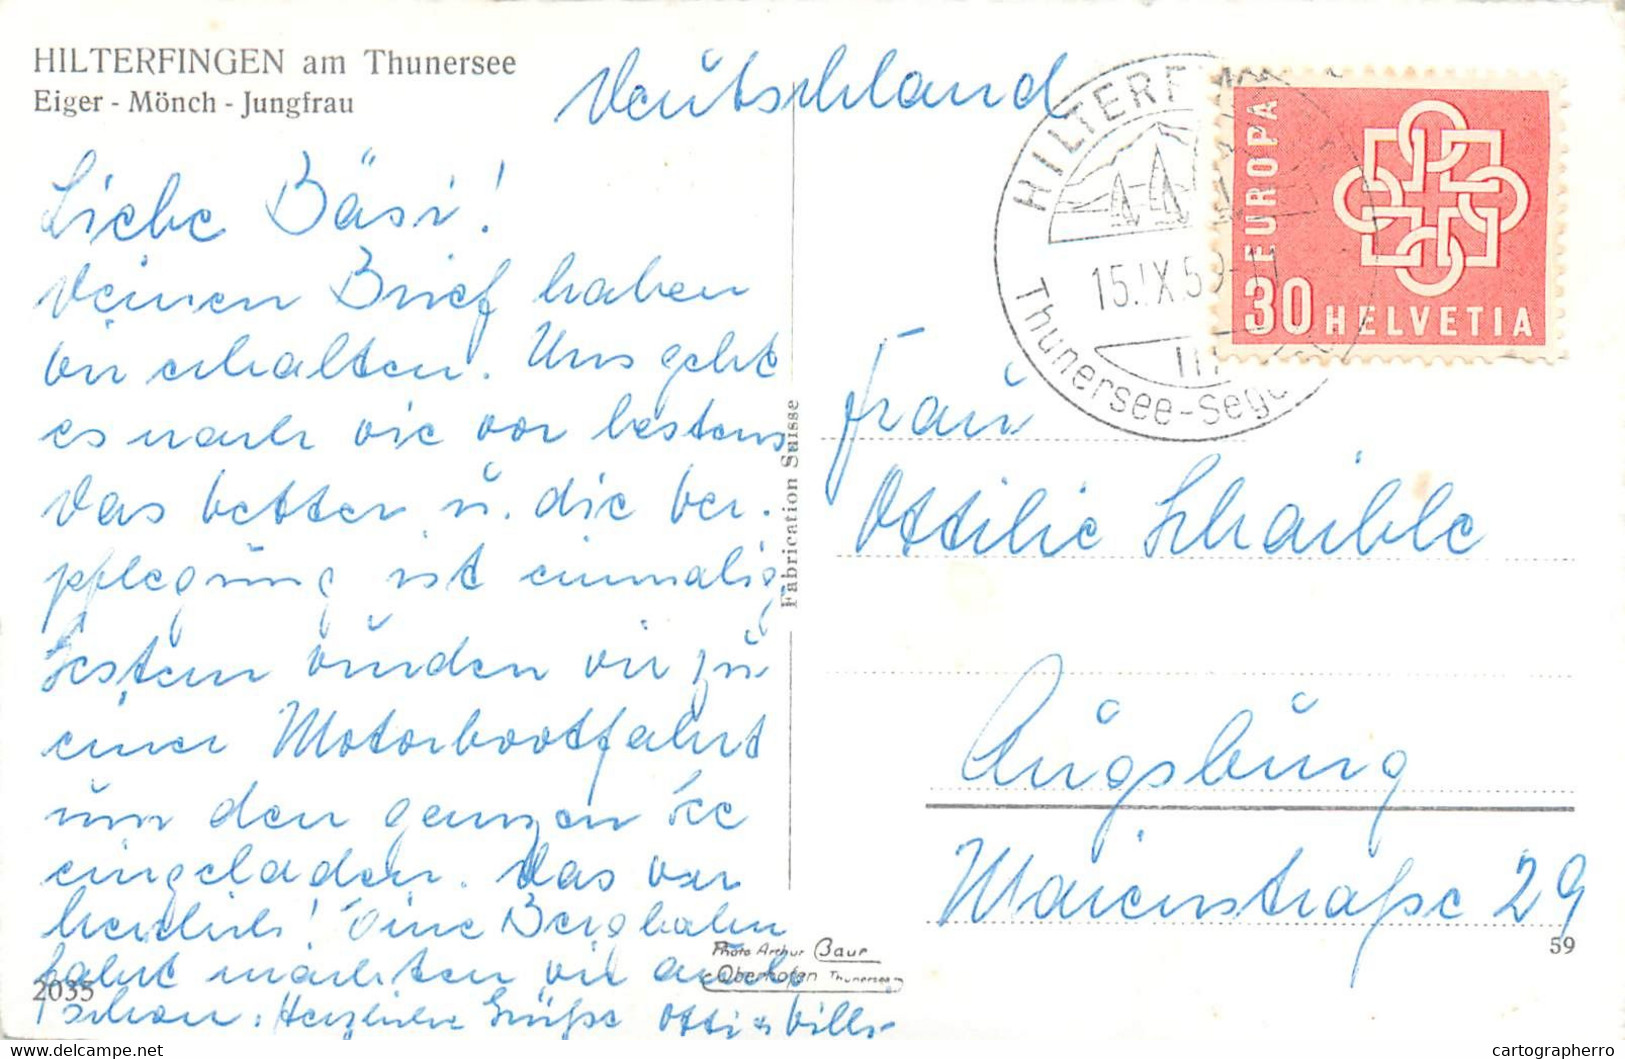 HILTERFINGEN am Thunersee
Eiger - Mönch - Jungfrau
Deutschland
Liebe Bäsi!
Deinen Brief haben
wir erhalten. Uns geht
es nach wie vor bestens
Das Wetter u. die Ver-
pflegung ist einmalig
Gestern wurden wir zu
einer Motorbootfahrt
um den ganzen See
eingeladen. Das war
herrlich! Eine Bergbahn
fahrt machten wir auch
schon. Herzliche Grüße Otti & Willi
HILTERF
15.IX.59-11
Thunersee-
EUROPA
30 HELVETIA
Frau
Ottilie Schaible
Augsburg
Maienstraße 29
Fabrication Suisse
Photo Arthur Baur
Oberhofen Thunersee
59
2035
www.delcampe.net
cartographerro